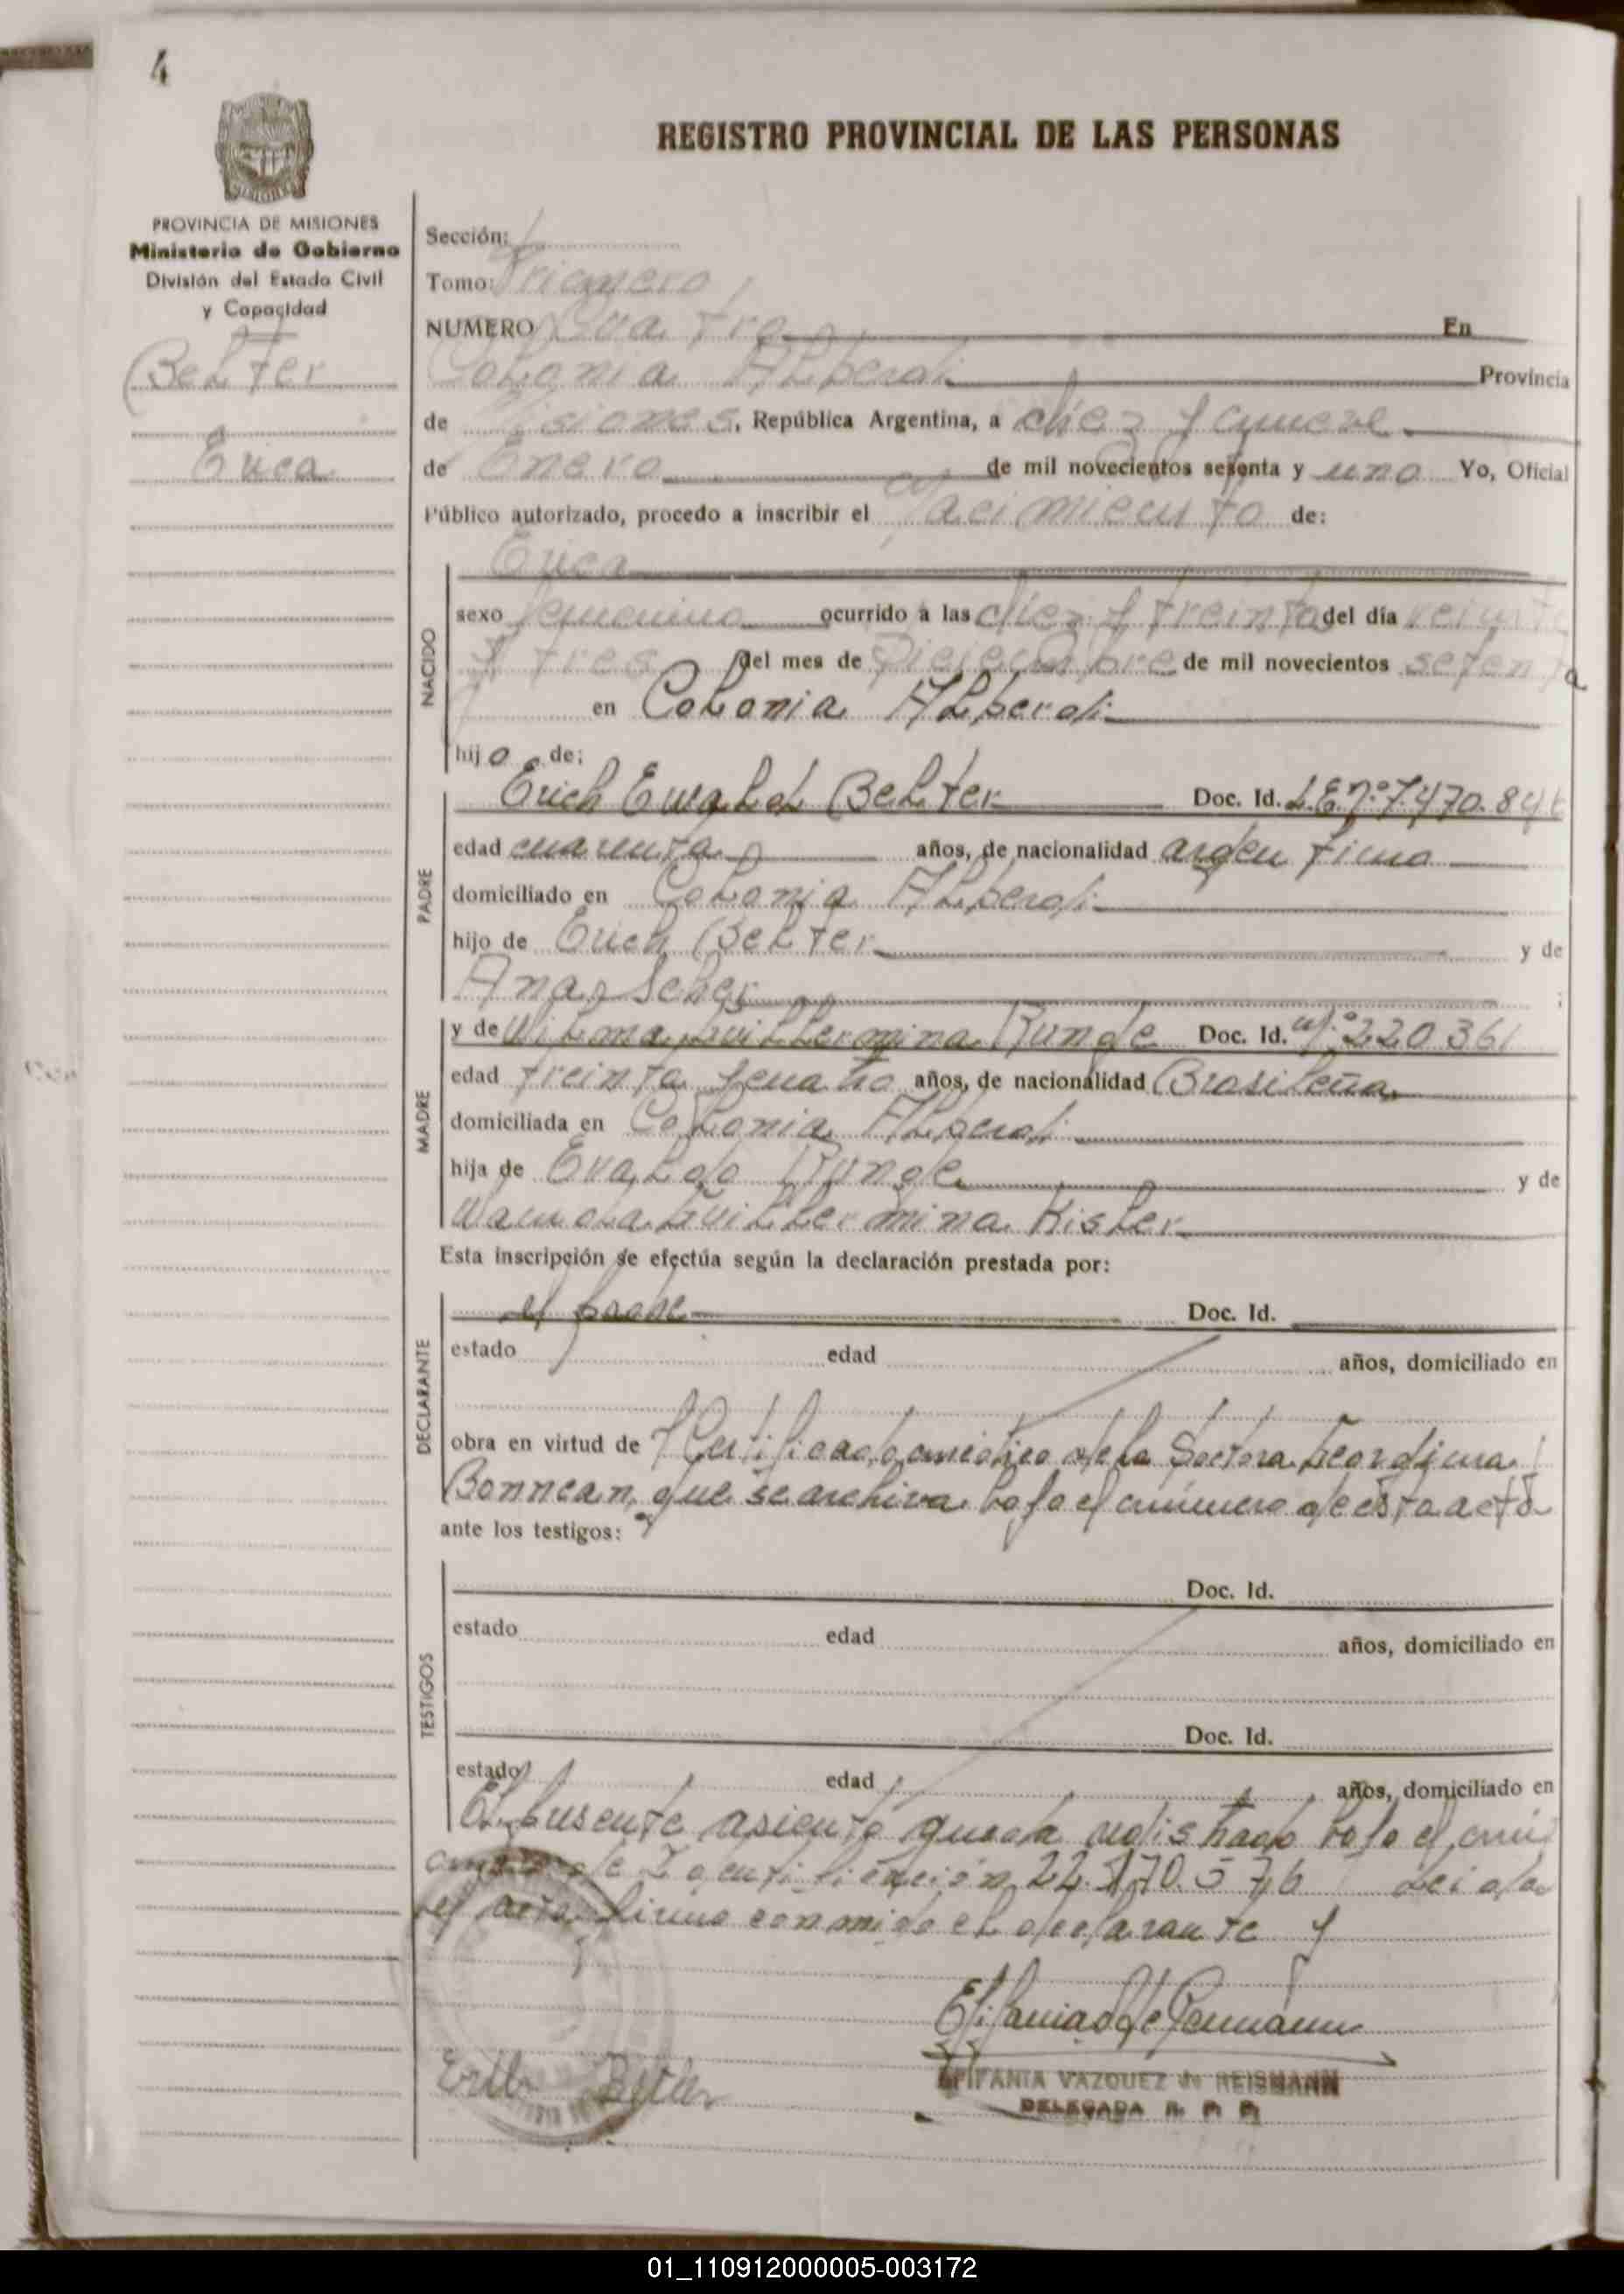 4
REGISTRO PROVINCIAL DE LAS PERSONAS
PROVINCIA DE MISIONES
Ministerio de Gobierno
División del Estado Civil
y Capacidad
Belter
Erica
Sección:
Tomo: Primero
NUMERO Cuatro En
Colonia Alberdi Provincia
de Misiones, República Argentina, a diez y nueve
de Enero de mil novecientos setenta y uno Yo, Oficial
Público autorizado, procedo a inscribir el Nacimiento de:
NACIDO
Erica
sexo femenino ocurrido a las diez y treinta del día veinte
y tres del mes de Diciembre de mil novecientos setenta
en Colonia Alberdi
hijo de:
PADRE
Erich Ewald Belter Doc. Id. L.E. nº 7.470.846
edad cuarenta años, de nacionalidad argentino
domiciliado en Colonia Alberdi
hijo de Erich Belter y de
Ana ;
MADRE
y de Wilma Guillermina Runde Doc. Id. nº 220361
edad treinta y cuatro años, de nacionalidad Brasileña
domiciliada en Colonia Alberdi
hija de Evaldo Runde y de
Wanda Guillermina Kisler
Esta inscripción se efectúa según la declaración prestada por:
DECLARANTE
el padre Doc. Id.
estado edad años, domiciliado en
obra en virtud de Certificado médico de la Doctora
Bonnean, que se archiva bajo el número de esta acta
ante los testigos:
TESTIGOS
Doc. Id.
estado edad años, domiciliado en
Doc. Id.
estado edad años, domiciliado en
El presente asiento queda registrado bajo el nú
mero de Identificación 22.170.576 Leida
el acta firma conmigo el declarante y
EPIFANIA VAZQUEZ de REISMANN
DELEGADA R. P. P.
01_110912000005-003172